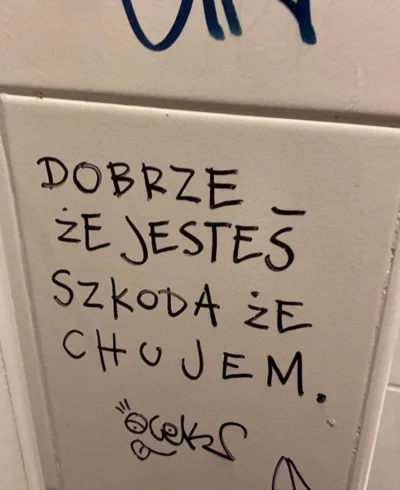 DOBRZE
ŻE JESTEŚ
SZKODA ŻE
CHUJEM.